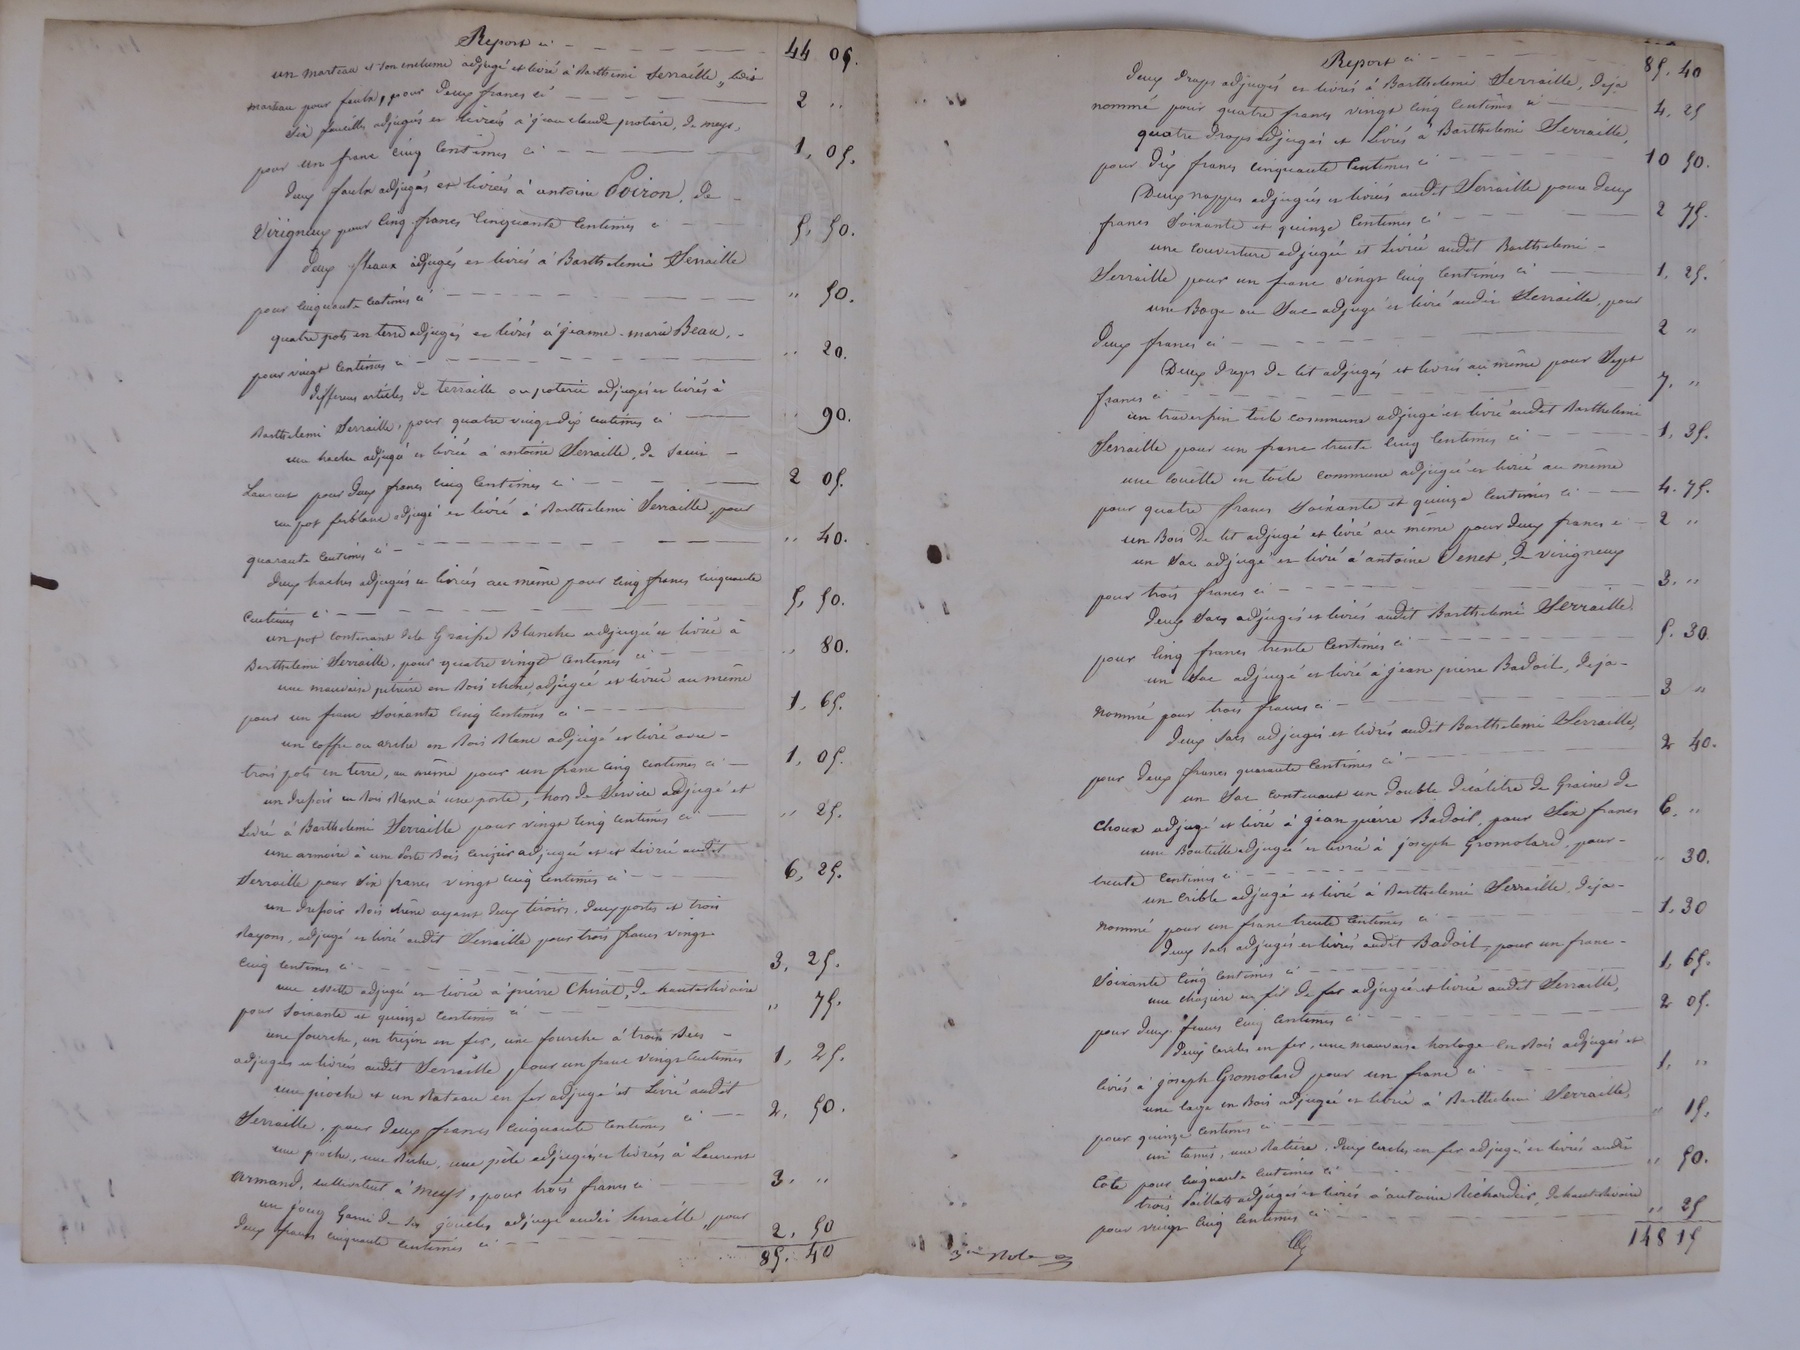 Report ci 44 05.
un marteau et son enclume adjugé et livré à Barthelemi Serraille,
marteau pour faulx, pour deux francs ci 2 "
Six faucilles adjugées et livrées à jean claude protière, de meys,
pour un franc cinq Centimes ci 1, 05.
deux faulx adjugées et livrées à antoine Poiron, de
Virigneux pour Cinq francs Cinquante Centimes ci 5, 50.
deux fléaux adjugés et livrés à Barthelemi Serraille
pour Cinquante Centimes ci " 50.
quatre pots en terre adjugés et livrés à jeanne-marie Beau,
pour vingt Centimes ci " 20.
differens articles de terraille ou poterie adjugés et livrés à
Barthelemi Serraille, pour quatre vingt dix centimes ci " 90.
une hache adjugée et livrée à antoine Serraille, de Saint
Laurent pour deux francs cinq Centimes ci 2 05.
un pot ferblanc adjugé et livré à Barthelemi Serraille, pour
quarante Centimes ci " 40.
deux haches adjugées et livrées au même pour Cinq francs Cinquante
Centimes ci 5, 50.
un pot contenant de la Graisse Blanche adjugé et livré à
Barthelemi Serraille, pour quatre vingt Centimes ci " 80.
une mauvaise pétrière en Bois chêne, adjugée et livrée au même
pour un franc Soixante Cinq Centimes ci 1, 65.
un coffre ou arche en Bois Blanc adjugé et livré avec
trois pots en terre, au même pour un franc Cinq Centimes ci 1, 05.
un dressoir en Bois Blanc à une porte, hors de Service adjugé et
Livré à Barthelemi Serraille pour vingt Cinq Centimes ci " 25.
une armoire à une Porte Bois Cerisier adjugée et Livrée audit
Serraille pour Six francs vingt Cinq Centimes ci 6, 25.
un dressoir Bois chêne ayant deux tiroirs, deux portes et trois
Rayons, adjugé et livré audit Serraille pour trois francs vingt
Cinq Centimes ci 3, 25.
une essette adjugée et livrée à pierre Chirat, de hauterivoire
pour Soixante et quinze Centimes ci " 75.
une fourche, un trezin en fer, une fourche à trois Becs
adjugés et livrés audit Serraille pour un franc vingt Centimes 1, 25.
une pioche et un Rateau en fer adjugé et Livré audit
Serraille, pour deux francs Cinquante Centimes ci 2, 50.
une pioche, une Biche, une pêle adjugées et livrées à Laurent
Armand, cultivateur à Meys, pour trois francs ci 3. "
un joug Garni de Six jouclés adjugé audit Serraille, pour
deux francs Cinquante Centimes ci 2, 50
85. 40
Report ci 85. 40
deux draps adjugés et livrés à Barthelemi Serraille, déja
nommé pour quatre francs vingt Cinq Centimes ci 4, 25
quatre draps adjugés et Livrés à Barthelemi Serraille,
pour dix francs Cinquante Centimes ci 10 50.
Deux nappes adjugées et livrées audit Serraille pour deux
francs Soixante et quinze Centimes ci 2 75.
une Couverture adjugée et Livrée audit Barthelemi
Serraille pour un franc vingt Cinq Centimes ci 1, 25.
une Boge ou Sac adjugé et livré audit Serraille, pour
deux francs ci 2 "
Deux draps de lit adjugés et livrés au même pour Sept
francs ci 7, "
un traversin toile commune adjugé et livré audit Barthelemi
Serraille pour un franc trente Cinq Centimes ci 1, 35.
une Couëtte en toile commune adjugée et livrée au même
pour quatre francs Soixante et quinze Centimes ci 4. 75.
un Bois de lit adjugé et livré au même pour deux francs ci 2 "
un Sac adjugé et livré à antoine Venet, de Virigneux
pour trois francs ci 3. "
deux Sacs adjugés et livrés audit Barthelemi Serraille,
pour Cinq francs trente Centimes ci 5. 30.
un Sac adjugé et livré à jean pierre Badoil, déja
nommé pour trois francs ci 3 "
deux Sacs adjugés et livrés audit Barthelemi Serraille,
pour deux francs quarante Centimes ci 2 40.
un Sac contenant un double décalitre de Graine de
Choux adjugé et livré à jean pierre Badoil, pour Six francs 6. "
une Bouteille adjugée et livrée à joseph Gromolard, pour
trente Centimes ci " 30.
un Crible adjugé et livré à Barthelemi Serraille, déja
nommé pour un franc trente Centimes ci 1. 30
deux Sacs adjugés et livrés audit Badoil, pour un franc
Soixante Cinq Centimes ci 1, 65.
une chazière en fil de fer adjugée et livrée audit Serraille,
pour deux francs Cinq Centimes ci 2 05.
deux Cercles en fer, une mauvaise horloge en Bois adjugés et
livrés à joseph Gromolard pour un franc ci 1, "
une Cage en Bois adjugée et livrée à Barthelemi Serraille,
pour quinze Centimes ci " 15.
un tamis, une Ratière, deux Cercles en fer adjugés et livrés audit
Cote pour Cinquante Centimes ci " 50.
trois Paillats adjugés et livrés à antoine Richardier, de hauterivoire
pour vingt Cinq Centimes ci " 25
148 15